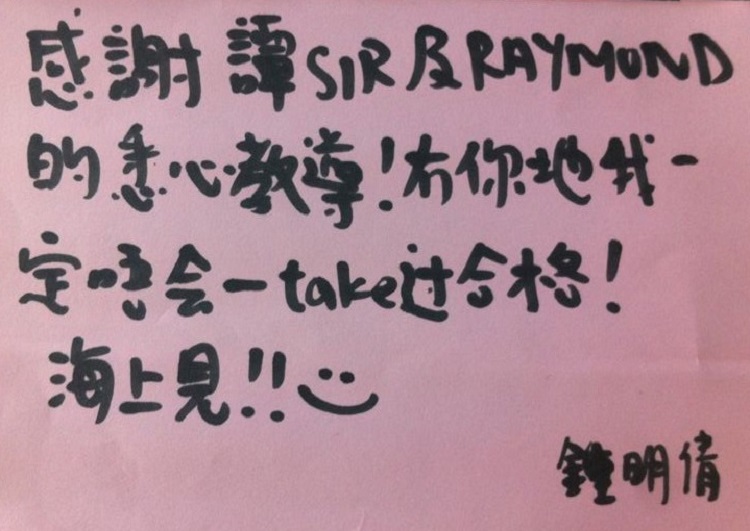 感謝譚SIR及RAYMOND
的悉心教導!冇你哋我一
定唔会一take过合格!
海上見!!
鍾明倩